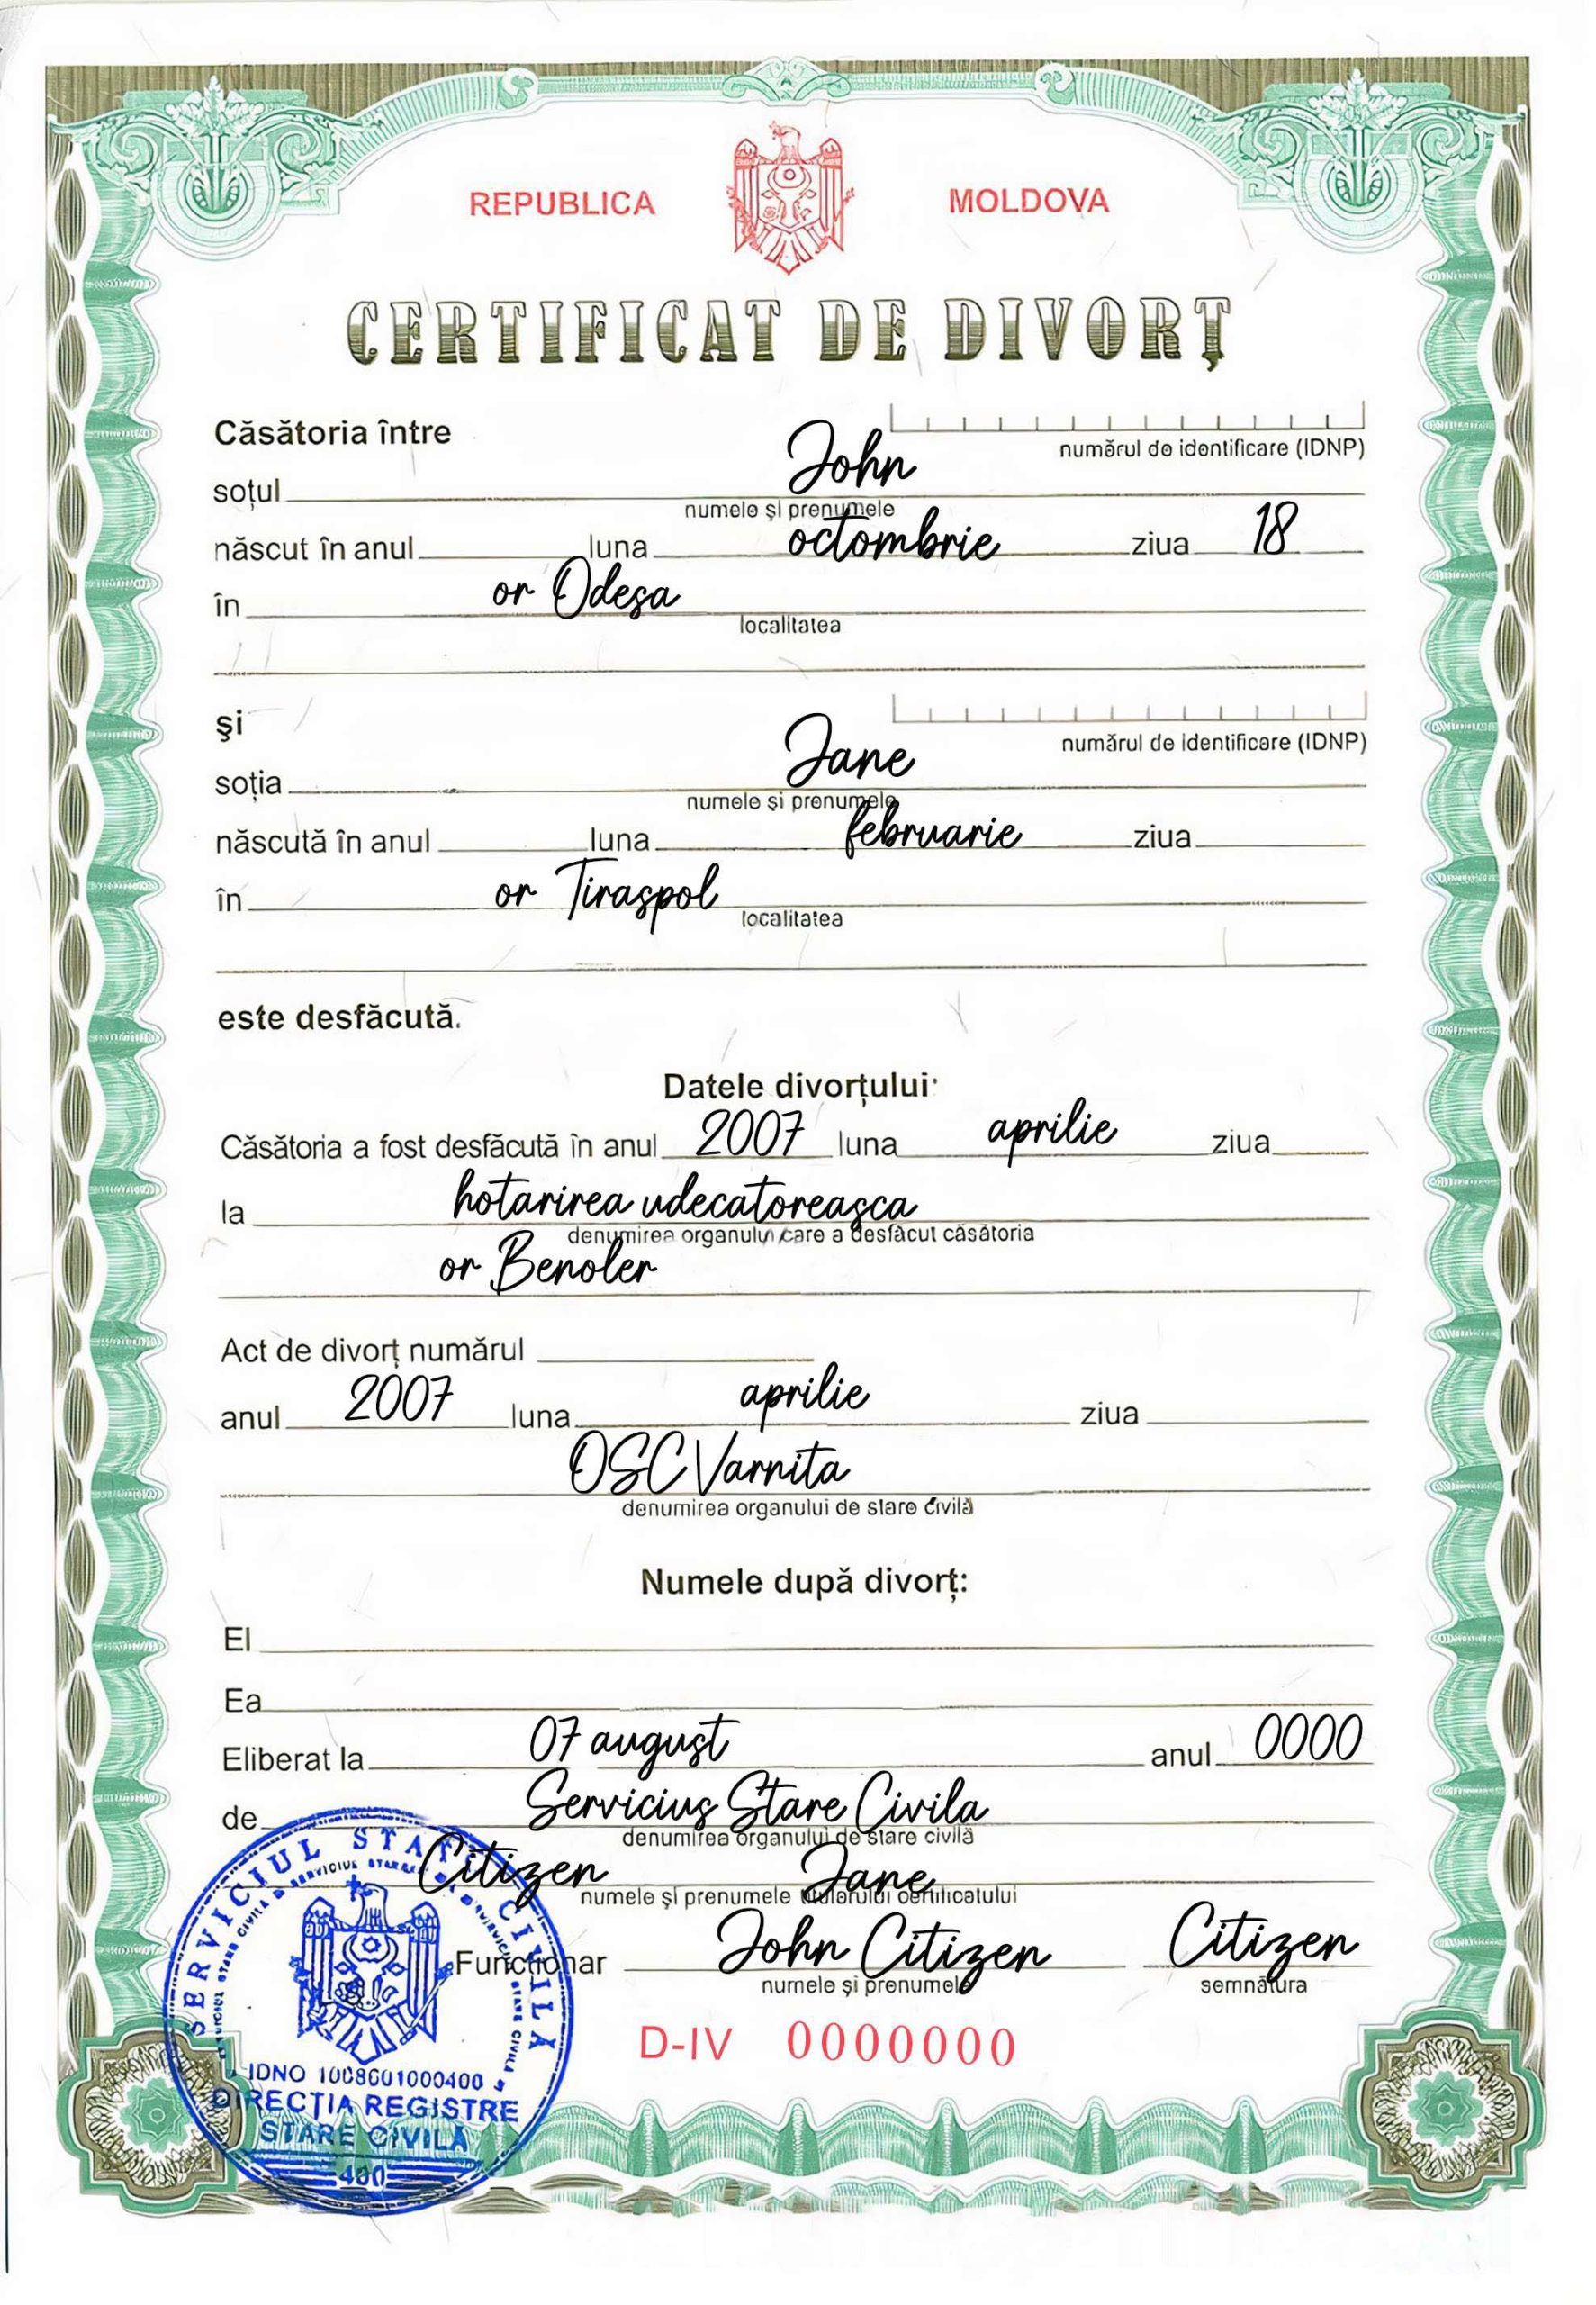 REPUBLICA MOLDOVA
CERTIFICAT DE DIVORŢ
Căsătoria între
numărul de identificare (IDNP)
soţul John
numele şi prenumele
născut în anul luna octombrie ziua 18
în or Odesa
localitatea
şi
numărul de identificare (IDNP)
soţia Jane
numele şi prenumele
născută în anul luna februarie ziua
în or Tiraspol
localitatea
este desfăcută.
Datele divorţului:
Căsătoria a fost desfăcută în anul 2007 luna aprilie ziua
la hotarirea udecatoreasca
denumirea organului care a desfăcut căsătoria
or Benoler
Act de divorţ numărul
anul 2007 luna aprilie ziua
OSC Varnita
denumirea organului de stare civilă
Numele după divorţ:
El
Ea
Eliberat la 07 august anul 0000
de Servicius Stare Civila
denumirea organului de stare civilă
Citizen Jane
numele şi prenumele titularului certificatului
Funcţionar John Citizen Citizen
numele şi prenumele semnătura
D-IV 0000000
SERVICIUL STARE CIVILĂ
IDNO 1008601000400
DIRECŢIA REGISTRE
STARE CIVILĂ
400